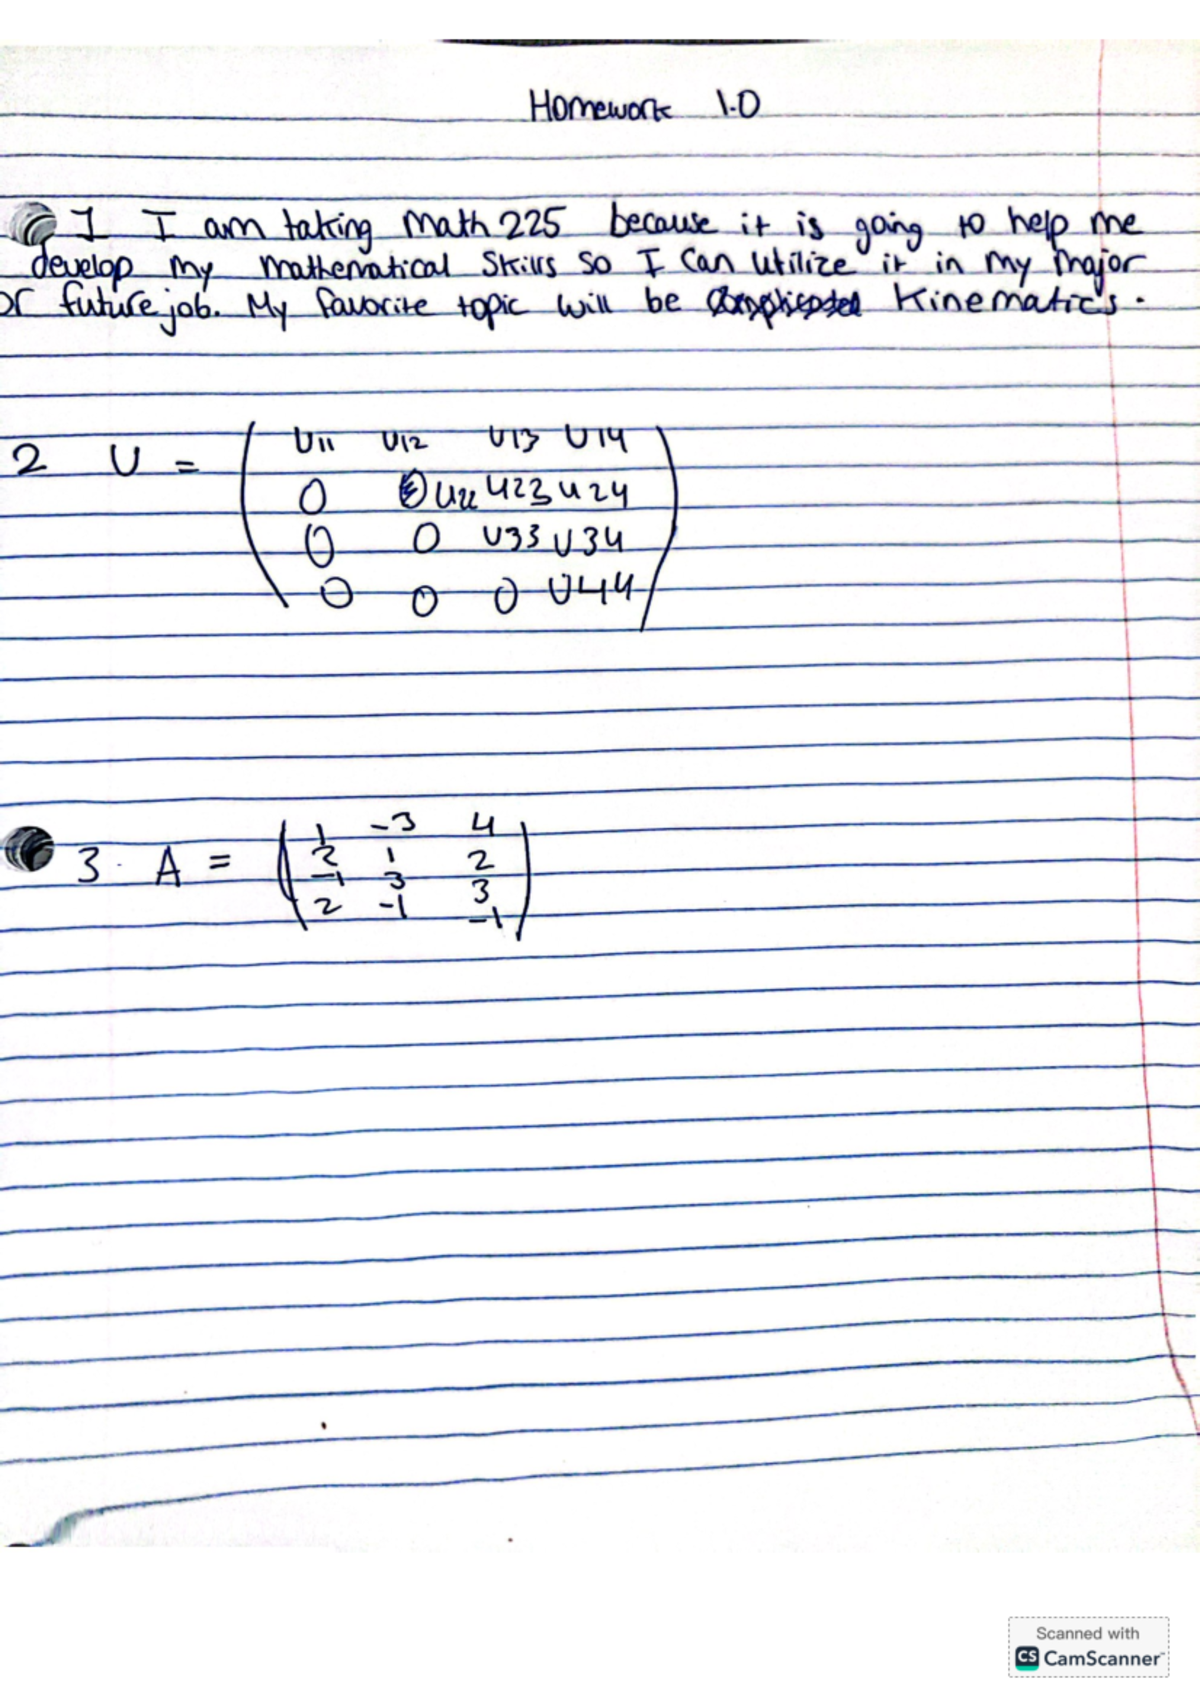 Homework 1.0
1 I am taking Math 225 because it is going to help me
develop my mathematical Skills so I Can Utilize it in my major
or future job. My favorite topic will be Kinematics.
U11 U12 U13 U14
2 U =
0 U22 U23 U24
0 0 U33 U34
0 0 0 U44
1 -3 4
3. A = 2 1 2
-1 3 3
2 -1 -1
Scanned with
CS CamScanner